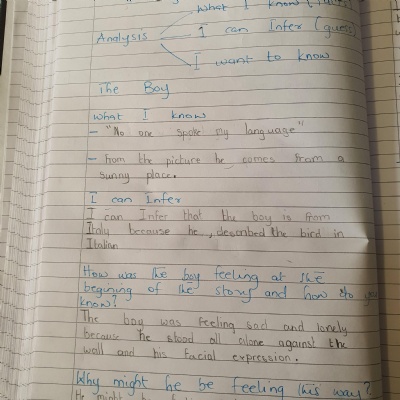 What I know (
Analysis I can Infer (guess)
I want to know
The Boy
what I know
- "No one spoke my language"
- From the picture he comes from a
sunny place.
I can Infer
I can Infer that the boy is from
Italy because he, described the bird in
Italian
How was the boy feeling at the
begining of the story and how do you
know?
The boy was feeling sad and lonely
because he stood all alone against the
wall and his facial expression.
Why might he be feeling this way?
He might be